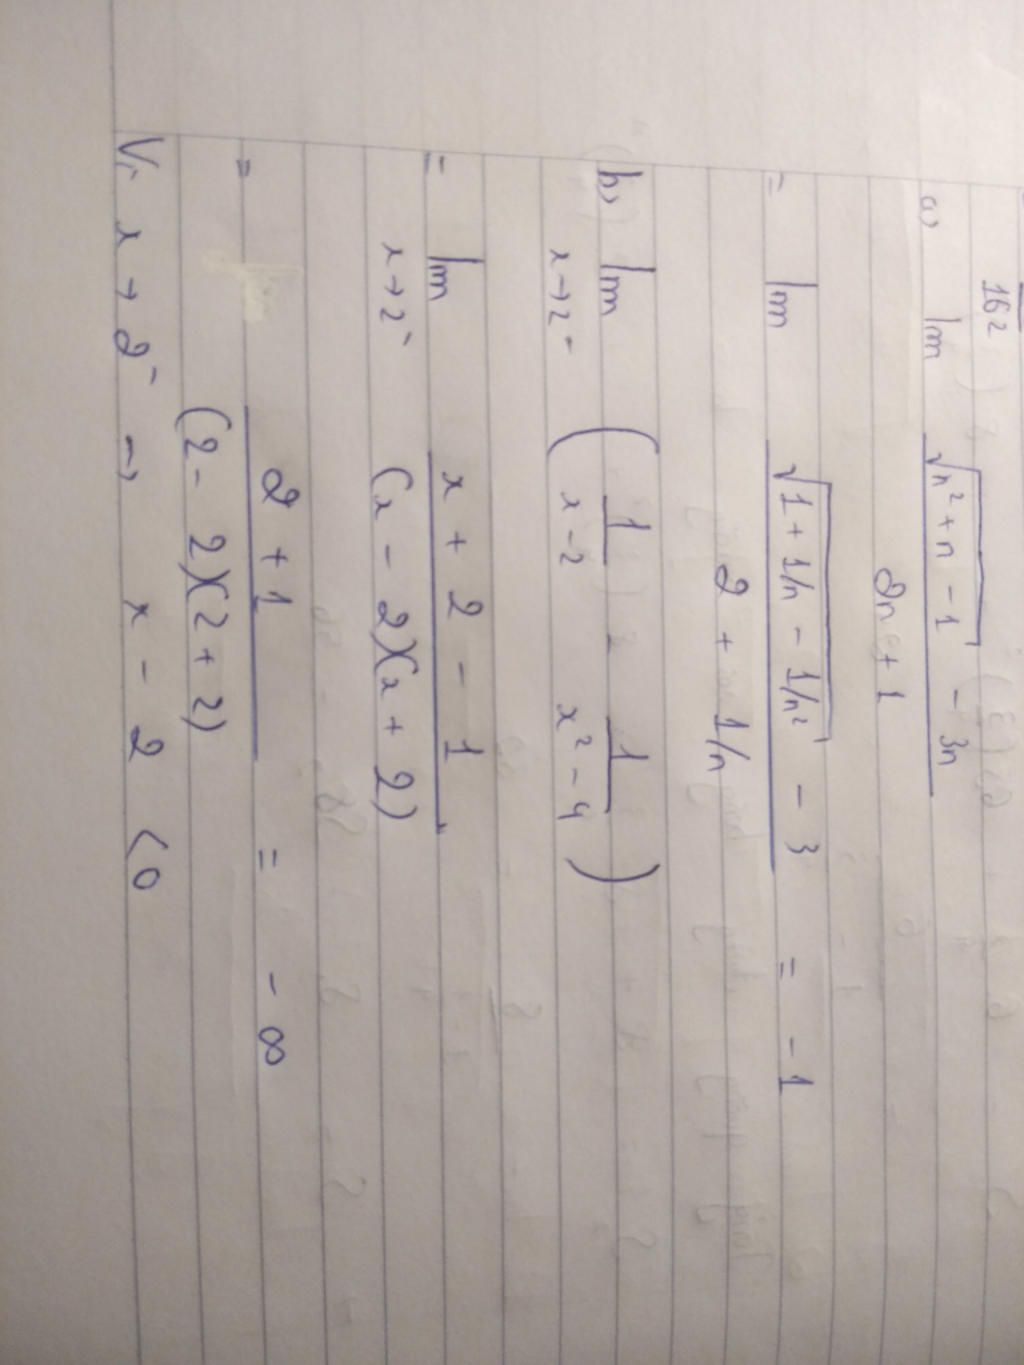 162
a) lim √(n² + n - 1) - 3n
2n + 1
= lim √(1 + 1/n - 1/n²) - 3 = -1
2 + 1/n
b) lim ( 1 1 )
x→2⁻ x - 2 x² - 4
= lim x + 2 - 1
x→2⁻ (x - 2)(x + 2)
= 2 + 1 = -∞
(2 - 2)(2 + 2)
Vì x → 2⁻ → x - 2 < 0